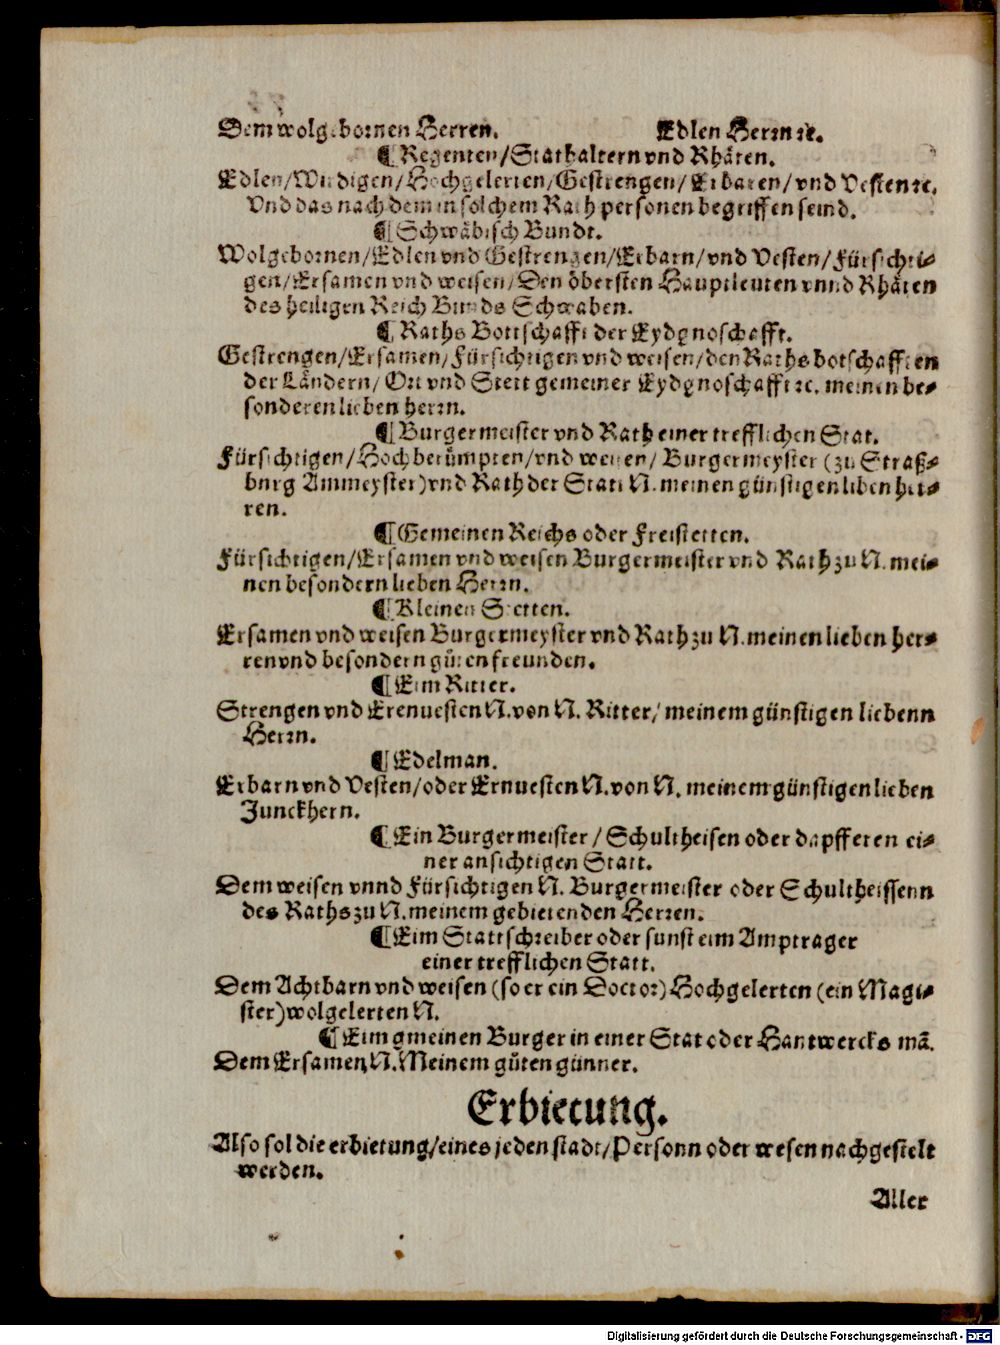 Dem wolgebornen Herren. Edlen Herrn ꝛc.
¶ Regenten/Stathaltern vnd Rhäten.
Edlen/Wirdigen/Hochgelerten/Gestrengen/Erbaren/vnd Vesten ꝛc.
Vnd das nach dem in solchem Rath personen begriffen seind.
¶ Schwäbisch Bundt.
Wolgebornen/Edlen vnd Gestrengen/Erbarn/vnd Vesten/Fürsichti-
gen/Ersamen vnd weisen/Den öbersten Hauptleuten vnnd Rhäten
des heiligen Reich Bunds Schwaben.
¶ Raths Bottschafft der Eydgnoschafft.
Gestrengen/Ersamen/Fürsichtigen vnd weisen/den Rathsbotschafften
der Ländern/Ort vnd Stett gemeiner Eydgnoschafft ꝛc. meinen be-
sonderen lieben herrn.
¶ Burgermeister vnd Rath einer trefflichen Stat.
Fürsichtigen/Hochberümpten/vnd weisen/Burgermeyster (zu Straß-
burg Ammeyster) vnd Rath der Statt N. meinen günstigen liben her-
ren.
¶ Gemeinen Reichs oder Freistetten.
Fürsichtigen/Ersamen vnd weisen Burgermeister vnd Rath zu N. mei-
nen besondern lieben Herrn.
¶ Kleinen Stetten.
Ersamen vnd weisen Burgermeyster vnd Rath zu N. meinen lieben her-
ren vnd besondern gůten freunden.
¶ Eim Ritter.
Strengen vnd Erenuesten N. von N. Ritter/meinem günstigen liebenn
Herrn.
¶ Edelman.
Erbarn vnd Vesten/oder Ernuesten N. von N. meinem günstigen lieben
Junckhern.
¶ Ein Burgermeister/Schultheisen oder dapfferen ei-
ner ansichtigen Statt.
Dem weisen vnnd Fürsichtigen N. Burgermeister oder Schultheissenn
des Raths zu N. meinem gebietenden Herren.
¶ Eim Stattschreiber oder sunst eim Amptrager
einer trefflichen Statt.
Dem Achtbarn vnd weisen (so er ein Doctor) Hochgelerten (ein Magi-
ster) wolgelerten N.
¶ Eim gmeinen Burger in einer Stat oder Hantwercks mã.
Dem Ersamen N. Meinem gůten günner.
Erbietung.
Also sol die erbietung/eines jeden stadt/Personn oder wesen nachgestelt
werden.
Aller
Digitalisierung gefördert durch die Deutsche Forschungsgemeinschaft - DFG